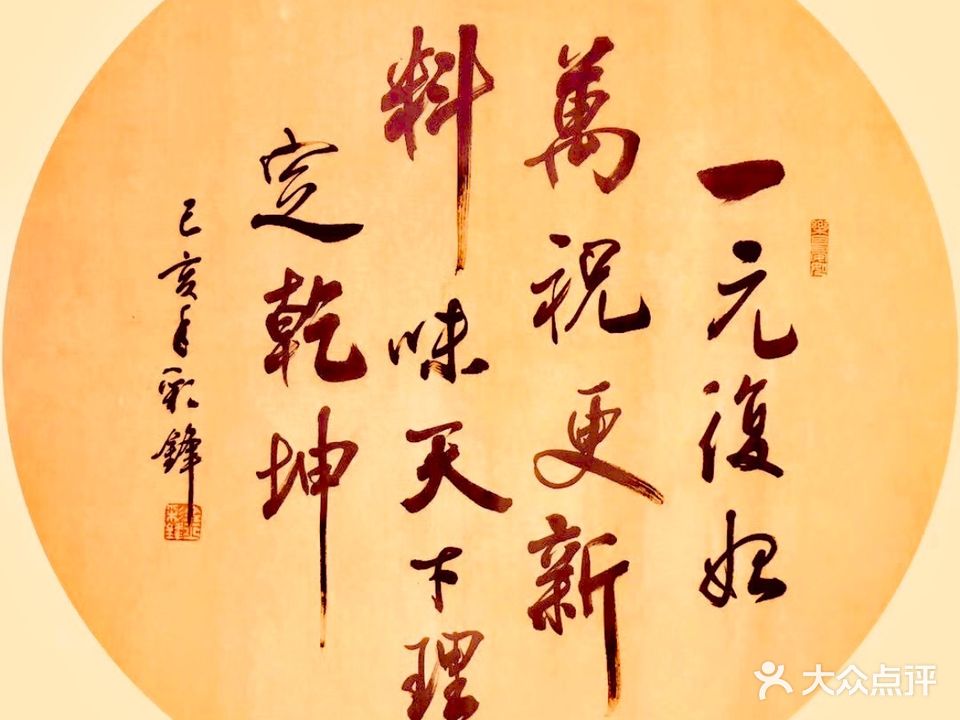 一元復始
萬祝更新
料味天下理
定乾坤
己亥年彩鋒
大众点评